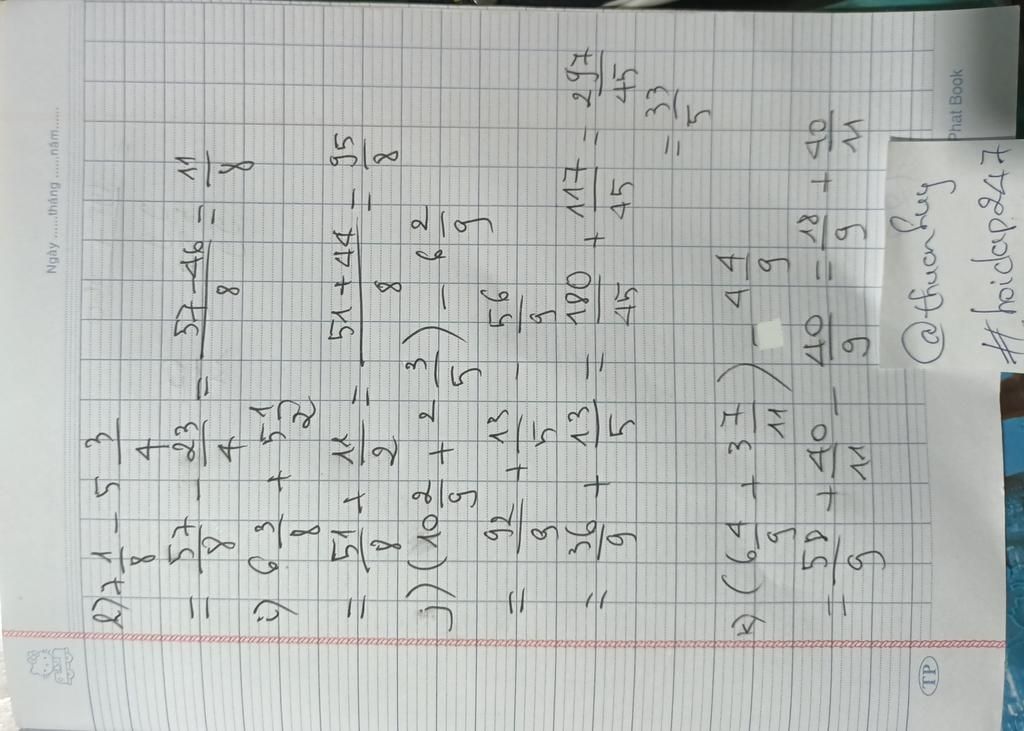 Ngày ......tháng ......năm......
h) 7 1/8 - 5 3/4
= 57/8 - 23/4 = 57-46/8 = 11/8
i) 6 3/8 + 5 1/2
= 51/8 + 11/2 = 51+44/8 = 95/8
j) (10 2/9 + 2 3/5) - 6 2/9
= 92/9 + 13/5 - 56/9
= 36/9 + 13/5 = 180/45 + 117/45 = 297/45
= 33/5
k) (6 4/9 + 3 7/11) - 4 4/9
= 58/9 + 40/11 - 40/9 = 18/9 + 40/11
TP
Phat Book
@thuanhuy
#hoidap247